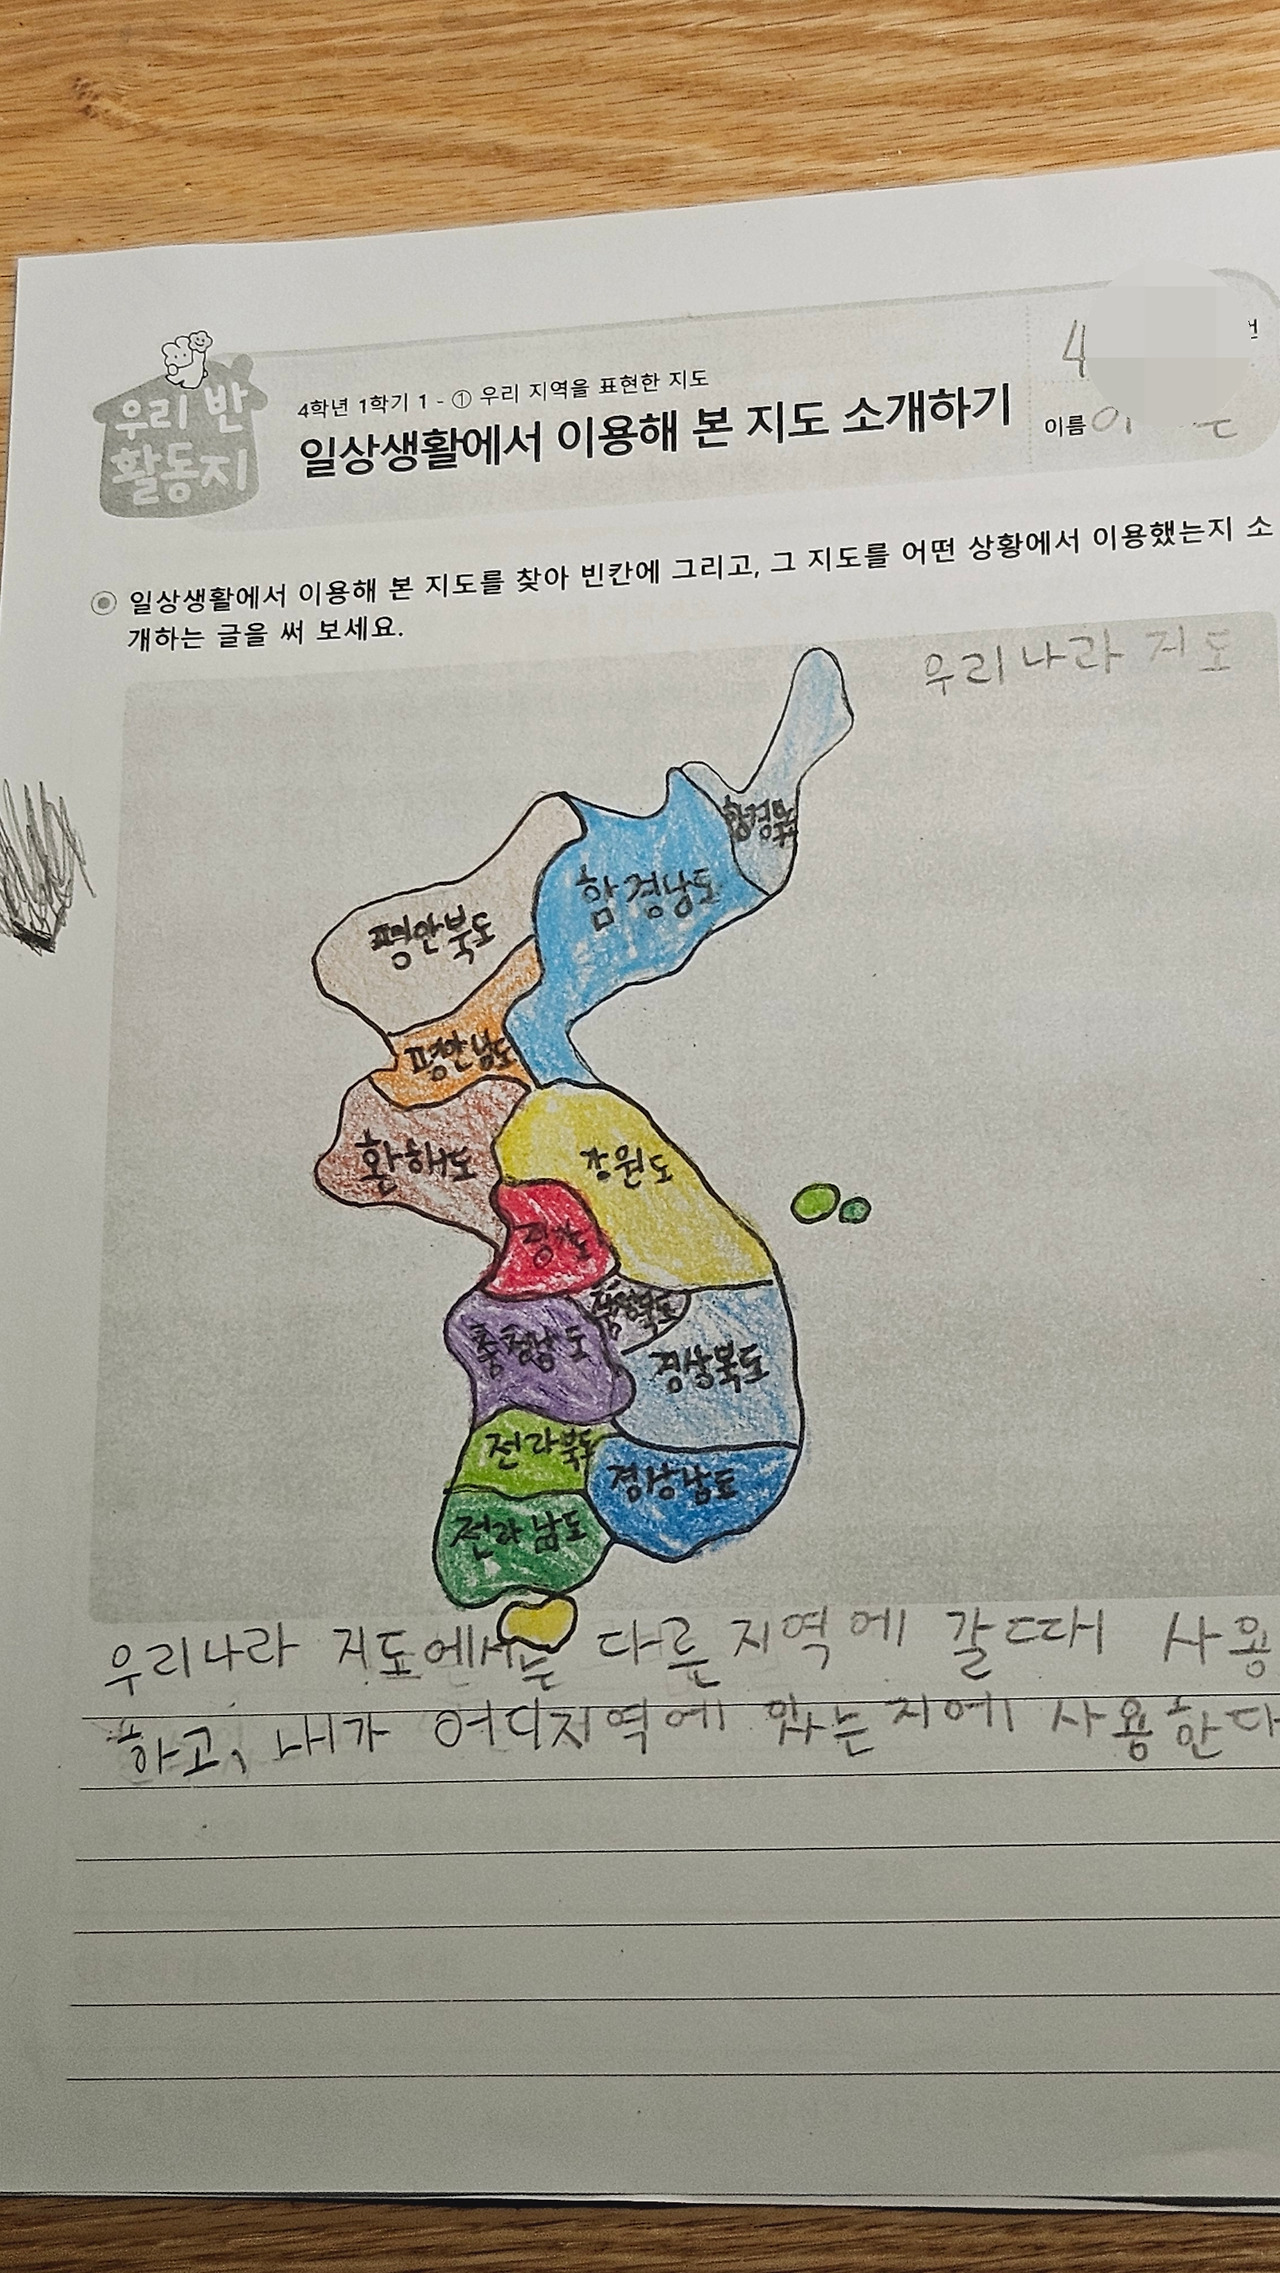 우리 반
활동지
4학년 1학기 1 - ① 우리 지역을 표현한 지도
일상생활에서 이용해 본 지도 소개하기
4
이름
일상생활에서 이용해 본 지도를 찾아 빈칸에 그리고, 그 지도를 어떤 상황에서 이용했는지 소
개하는 글을 써 보세요.
우리나라 지도
함경북도
함경남도
평안북도
평안남도
황해도
강원도
경기도
충청북도
충청남도
경상북도
전라북도
경상남도
전라남도
우리나라 지도에서는 다른지역에 갈때 사용
하고, 내가 어디지역에 있는지에 사용한다